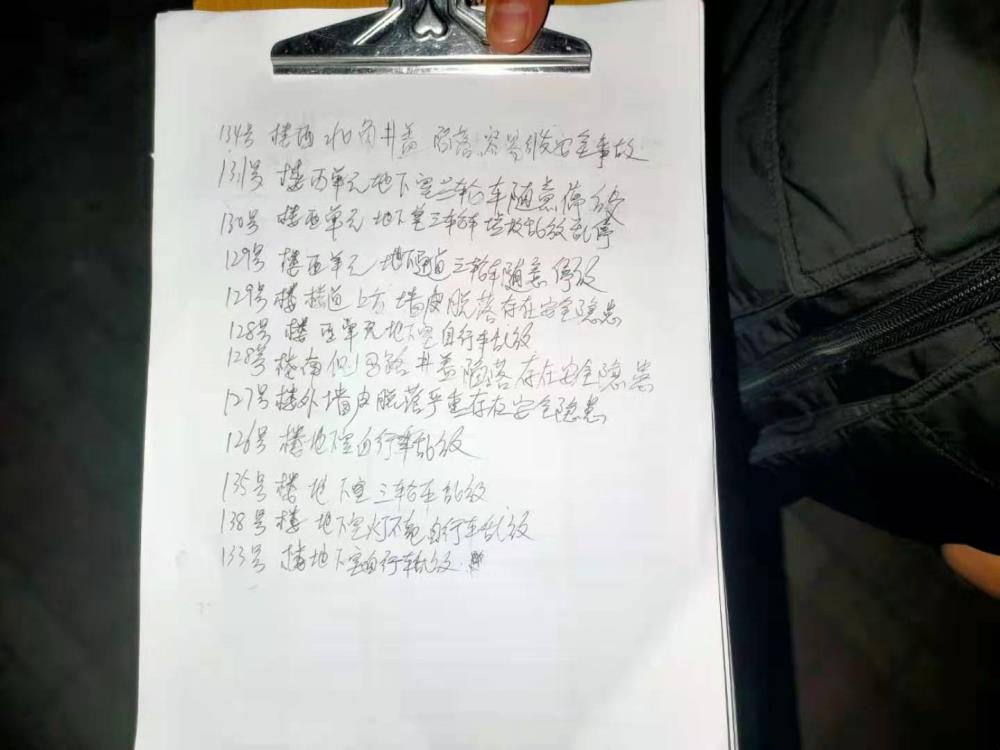 134号 楼西北角井盖 陷落容易引发安全事故
131号 楼西单元地下室三轮车随意停放
130号 楼西单元 地下室三轮车 垃圾乱放乱停
129号 楼西单元 地下通道三轮车随意停放
129号 楼楼道上方 墙皮脱落存在安全隐患
128号 楼西单元地下室自行车乱放
128号 楼南侧马路井盖陷落存在安全隐患
127号楼外墙皮脱落严重存在安全隐患
126号 楼地下室自行车乱放
135号 楼 地下室三轮车乱放
138号 楼 地下室灯不亮自行车乱放
133号 楼地下室自行车乱放